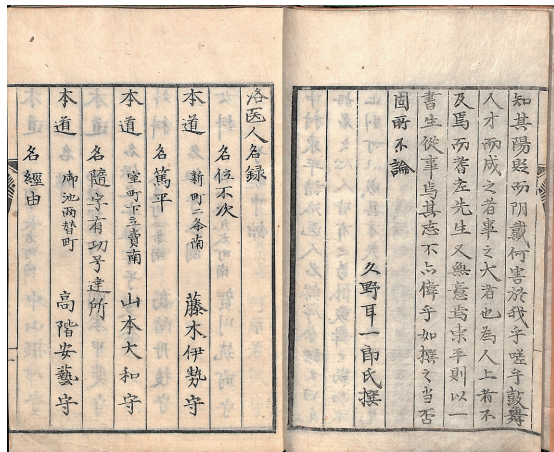 知其陽貶而阴戴何害於我乎嗟乎鼓舞
人才而成之者事之大者也為人上者不
及焉而耆庄先生又無意焉東平則以一
書生従事焉其志不亦偉乎如撰之当否
固所不論
久野耳一郎氏撰
洛医人名録
名位不次
本道 新町二条南 藤木伊勢守
名篤平
本道 室町下立賣南 山本大和守
名隨字有功号達所
本道 御池両替町 高階安藝守
名經由